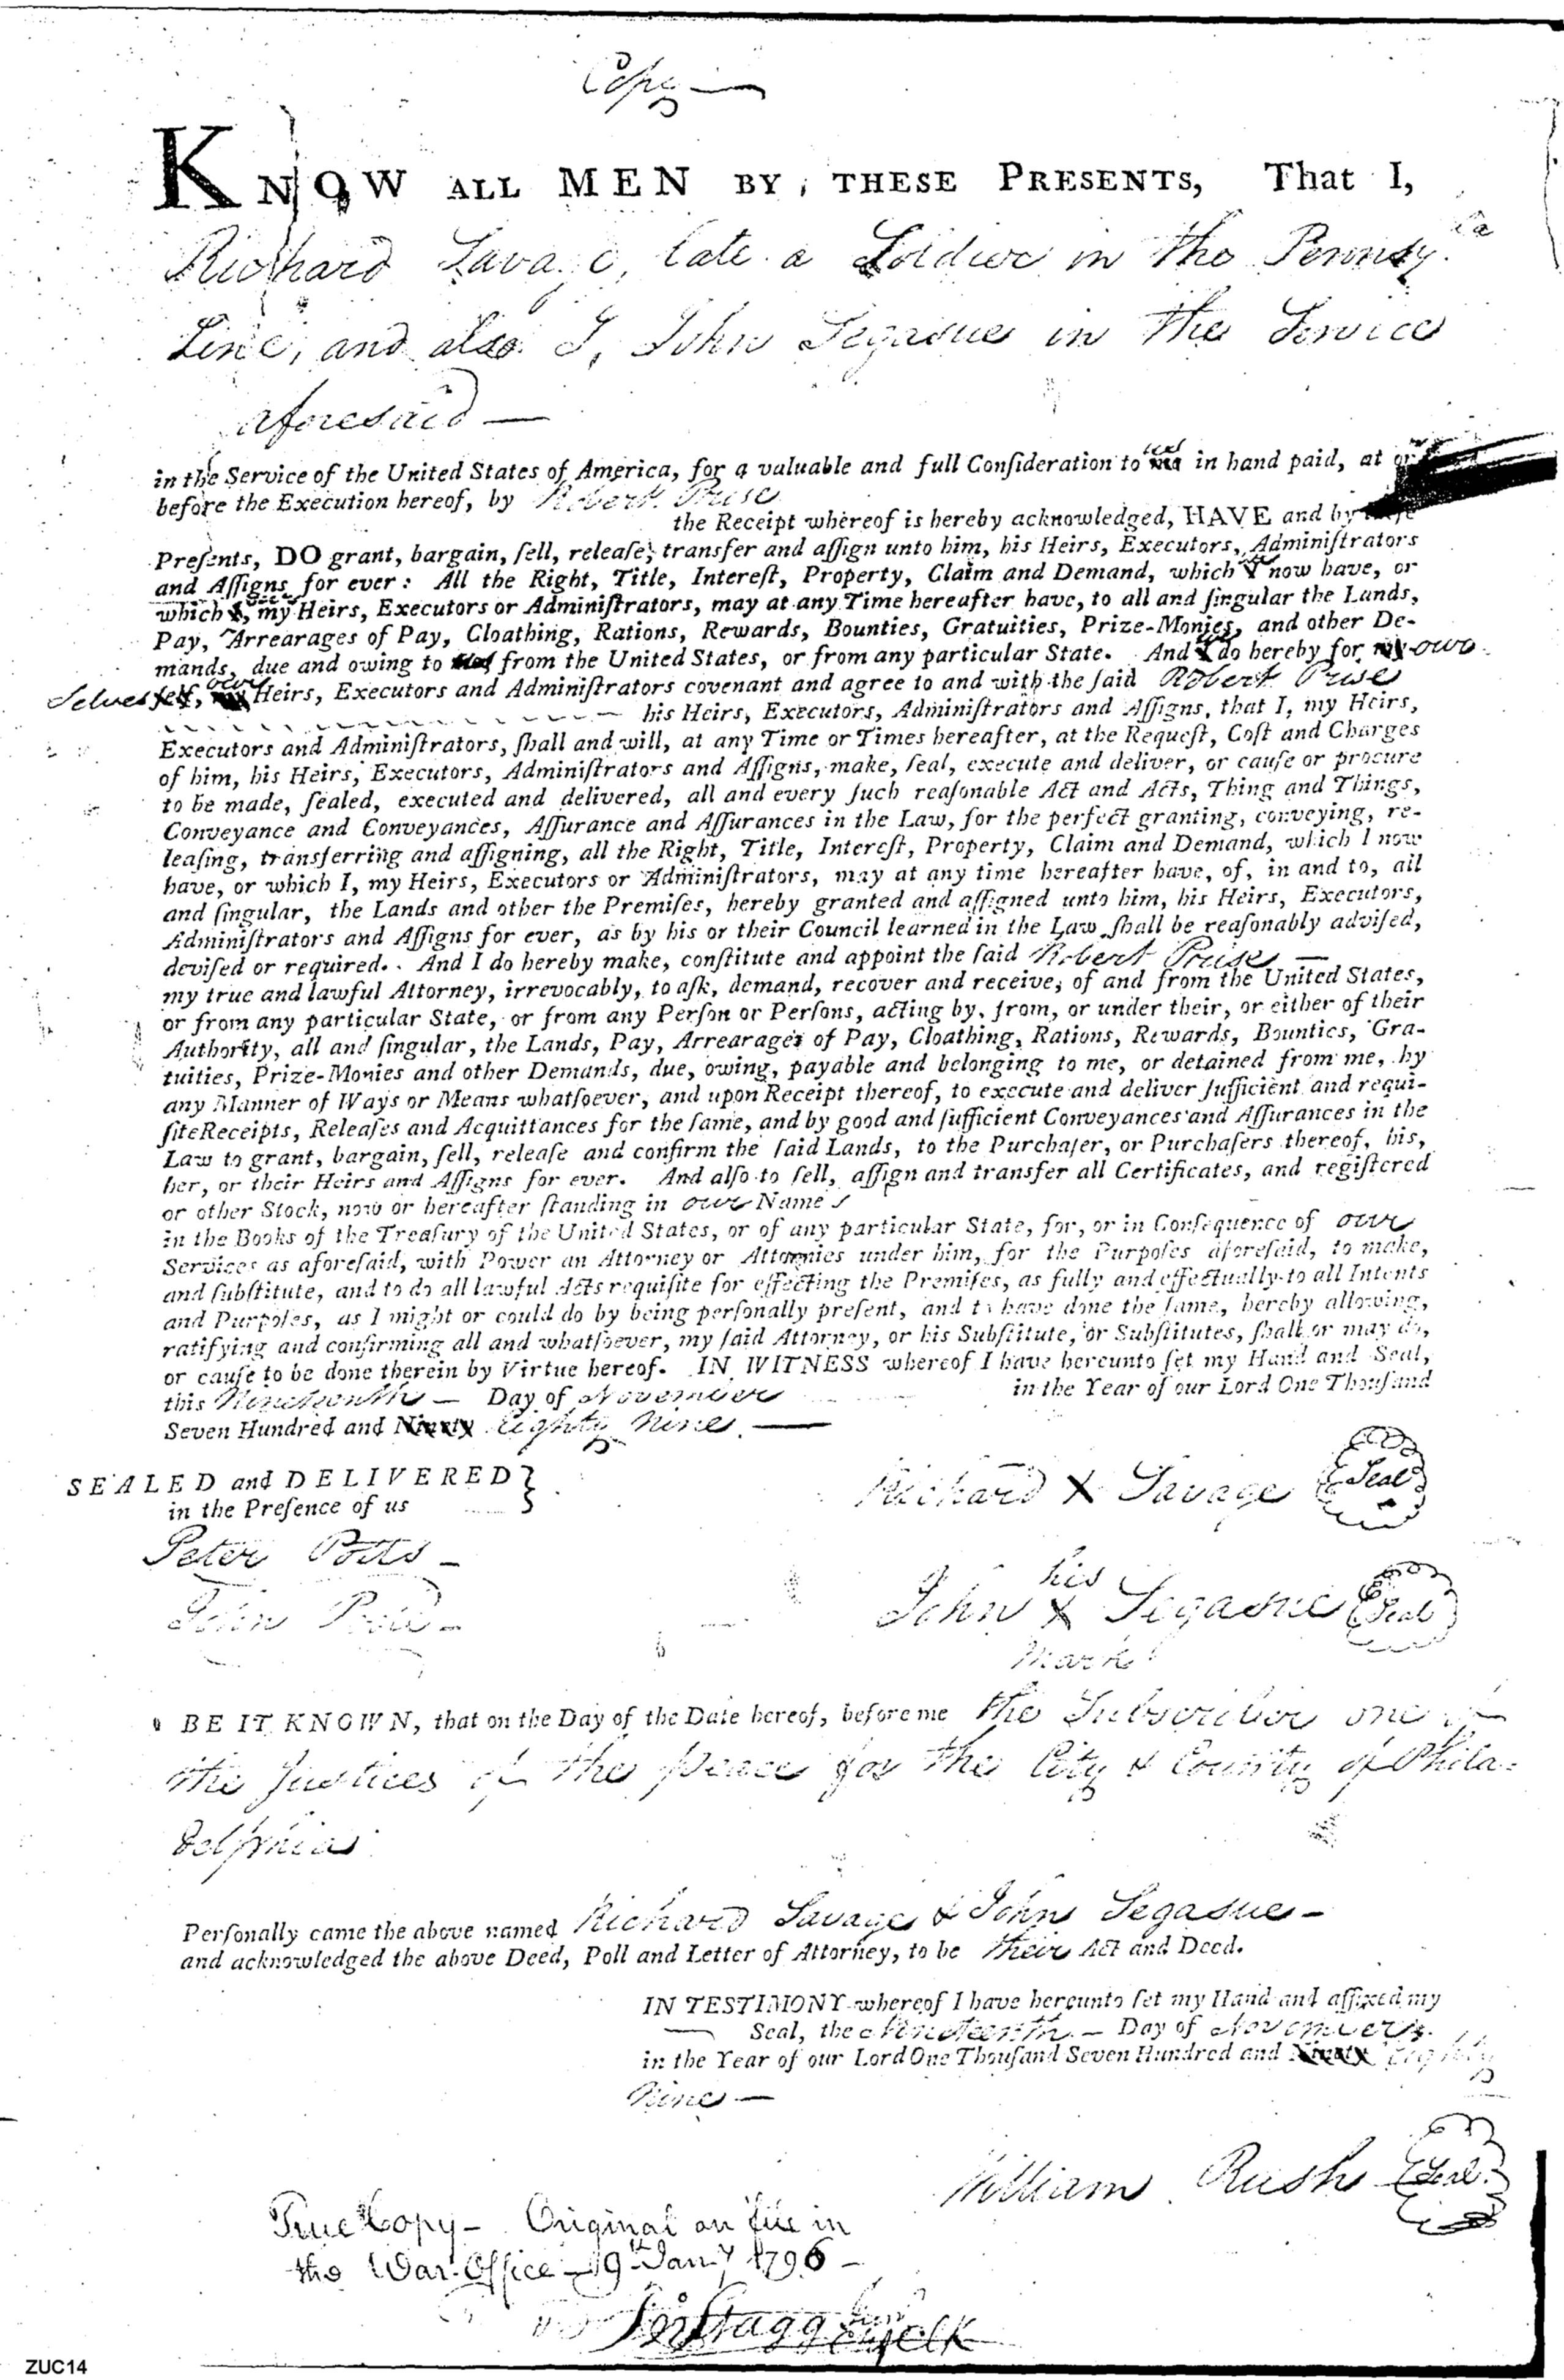 Copy —
KNOW ALL MEN BY THESE PRESENTS, That I,
Richard Savage, late a Soldier in the Pennsya
Line, and also I, John Segasue in the Service
aforesaid —
in the Service of the United States of America, for a valuable and full Consideration to in hand paid, at or
before the Execution hereof, by Robert Prise
the Receipt whereof is hereby acknowledged, HAVE and by these
Presents, DO grant, bargain, sell, release, transfer and assign unto him, his Heirs, Executors, Administrators
and Assigns for ever: All the Right, Title, Interest, Property, Claim and Demand, which I now have, or
which I, my Heirs, Executors or Administrators, may at any Time hereafter have, to all and singular the Lands,
Pay, Arrearages of Pay, Cloathing, Rations, Rewards, Bounties, Gratuities, Prize-Monies, and other De-
mands, due and owing to from the United States, or from any particular State. And I do hereby for my our
Selves self, my our Heirs, Executors and Administrators covenant and agree to and with the said Robert Prise
his Heirs, Executors, Administrators and Assigns, that I, my Heirs,
Executors and Administrators, shall and will, at any Time or Times hereafter, at the Request, Cost and Charges
of him, his Heirs, Executors, Administrators and Assigns, make, seal, execute and deliver, or cause or procure
to be made, sealed, executed and delivered, all and every such reasonable Act and Acts, Thing and Things,
Conveyance and Conveyances, Assurance and Assurances in the Law, for the perfect granting, conveying, re-
leasing, transferring and assigning, all the Right, Title, Interest, Property, Claim and Demand, which I now
have, or which I, my Heirs, Executors or Administrators, may at any time hereafter have, of, in and to, all
and singular, the Lands and other the Premises, hereby granted and assigned unto him, his Heirs, Executors,
Administrators and Assigns for ever, as by his or their Council learned in the Law shall be reasonably advised,
devised or required. And I do hereby make, constitute and appoint the said Robert Prise —
my true and lawful Attorney, irrevocably, to ask, demand, recover and receive, of and from the United States,
or from any particular State, or from any Person or Persons, acting by, from, or under their, or either of their
Authority, all and singular, the Lands, Pay, Arrearages of Pay, Cloathing, Rations, Rewards, Bounties, Gra-
tuities, Prize-Monies and other Demands, due, owing, payable and belonging to me, or detained from me, by
any Manner of Ways or Means whatsoever, and upon Receipt thereof, to execute and deliver sufficient and requi-
site Receipts, Releases and Acquittances for the same, and by good and sufficient Conveyances and Assurances in the
Law to grant, bargain, sell, release and confirm the said Lands, to the Purchaser, or Purchasers thereof, his,
her, or their Heirs and Assigns for ever. And also to sell, assign and transfer all Certificates, and registered
or other Stock, now or hereafter standing in our Names
in the Books of the Treasury of the United States, or of any particular State, for, or in Consequence of our
Services as aforesaid, with Power an Attorney or Attornies under him, for the Purposes aforesaid, to make,
and substitute, and to do all lawful Acts requisite for effecting the Premises, as fully and effectually to all Intents
and Purposes, as I might or could do by being personally present, and to have done the same, hereby allowing,
ratifying and confirming all and whatsoever, my said Attorney, or his Substitute, or Substitutes, shall or may do,
or cause to be done therein by Virtue hereof. IN WITNESS whereof I have hereunto set my Hand and Seal,
this Nineteenth — Day of November in the Year of our Lord One Thousand
Seven Hundred and Ninety Eighty Nine. —
SEALED and DELIVERED }
in the Presence of us
Richard X Savage Seal
Peter Potts —
his
John X Segasue Seal
mark
BE IT KNOWN, that on the Day of the Date hereof, before me the Subscriber one of
the Justices of the peace for the City & County of Phila-
delphia
Personally came the above named Richard Savage & John Segasue —
and acknowledged the above Deed, Poll and Letter of Attorney, to be their Act and Deed.
IN TESTIMONY whereof I have hereunto set my Hand and affixed my
— Seal, the Nineteenth — Day of November
in the Year of our Lord One Thousand Seven Hundred and Ninety Eighty
Nine —
William Rush Seal
True Copy — Original on file in
the War Office — 19th Jany 1796 —
Jno Stagg Junr
ZUC14